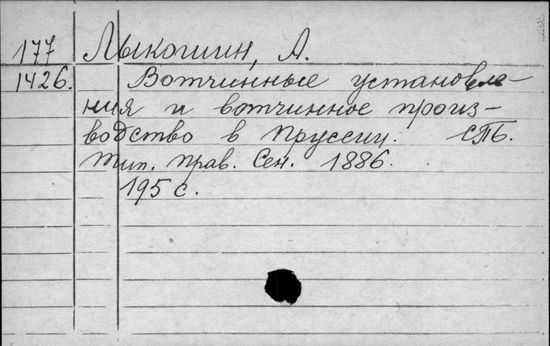 177 Лыкошин, А.
1426. Вотчинные установле-
ния и вотчинное произ-
водство в Пруссии. СПб.
Тип. Прав. Сен. 1886.
195 с.